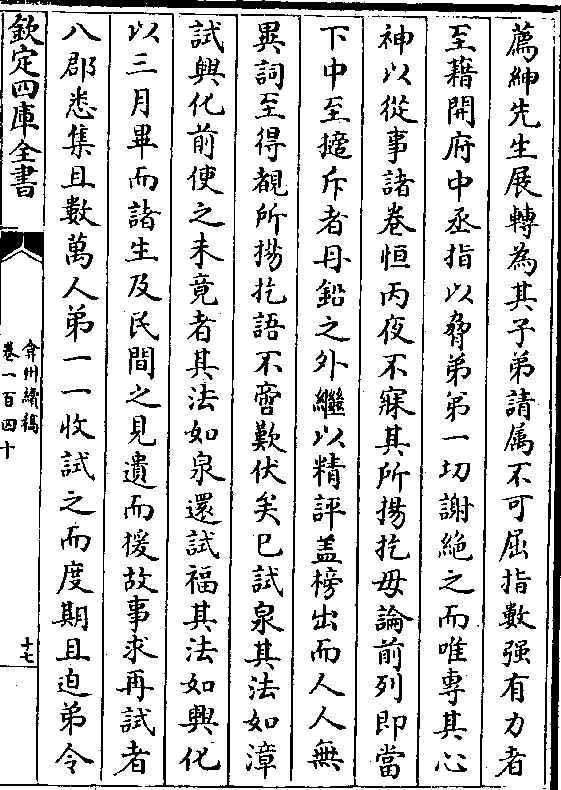 薦紳先生展轉為其子弟請属不可屈指數强有力者
至藉開府中丞指以脅弟弟一切謝絶之而唯專其心
神以從事諸卷恒丙夜不寐其所揚扢毋論前列即當
下中至擿斥者丹鉛之外繼以精評盖榜出而人人無
異詞至得覩所揚扢語不啻歎伏矣已試泉其法如漳
試興化前使之未竟者其法如泉還試福其法如興化
以三月畢而諸生及民間之見遺而援故事求再試者
八郡悉集且數萬人弟一一收試之而度期且迫弟令
欽定四庫全書
弇州續稿
卷一百四十
十七